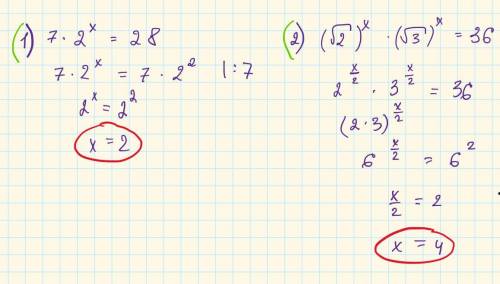 1) 7 · 2^x = 28
7 · 2^x = 7 · 2^2 |:7
2^x = 2^2
x = 2
2) (√2)^x · (√3)^x = 36
2^(x/2) · 3^(x/2) = 36
(2·3)^(x/2)
6^(x/2) = 6^2
x/2 = 2
x = 4